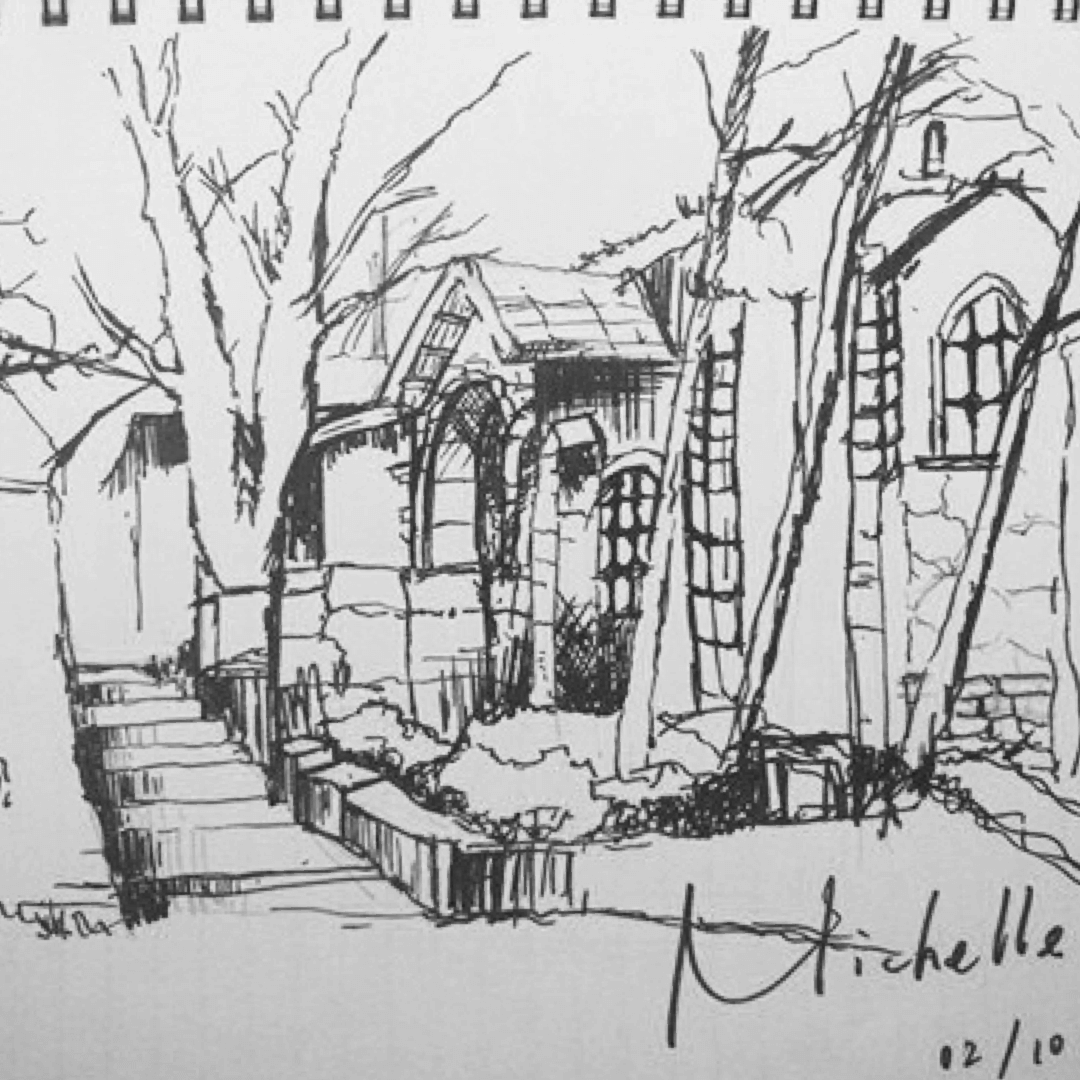 Michelle
02/10